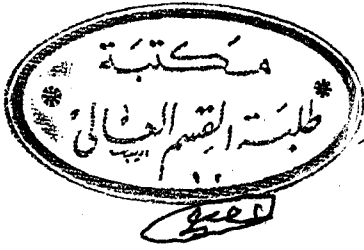 مَكتبَة
طلبَة القِسم العَالي
١٠